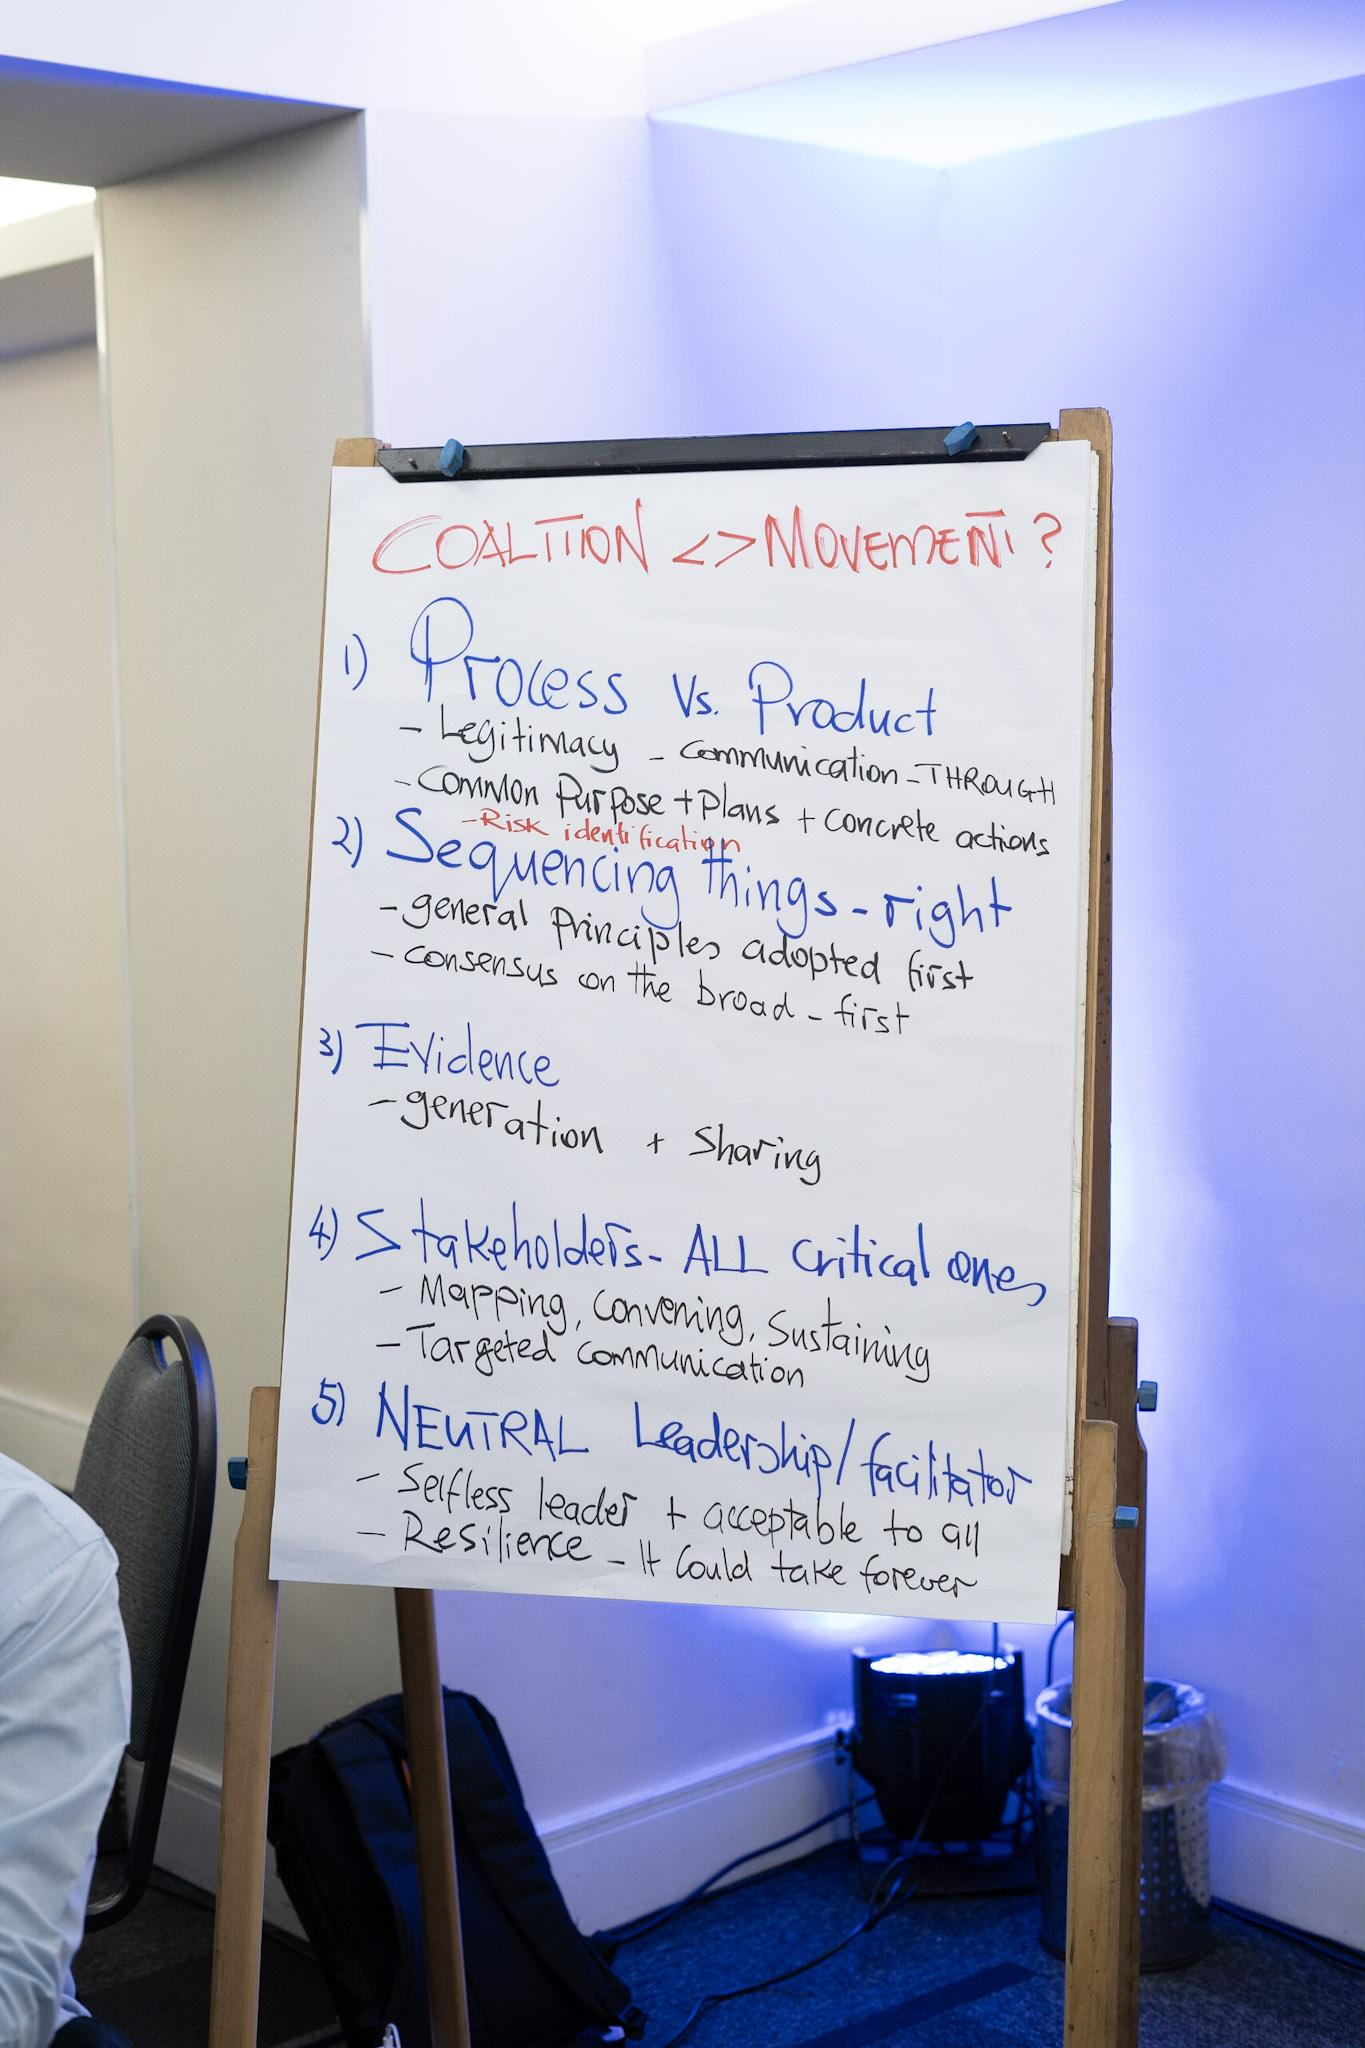 COALITION <> MOVEMENT ?
1) Process Vs. Product
- Legitimacy - communication - THROUGH
- Common Purpose + Plans + concrete actions
- Risk identification
2) Sequencing things - right
- general Principles adopted first
- consensus on the broad - first
3) Evidence
- generation + Sharing
4) Stakeholders - ALL critical ones
- Mapping, Convening, Sustaining
- Targeted communication
5) NEUTRAL Leadership/facilitator
- Selfless leader + acceptable to all
- Resilience - It Could take forever